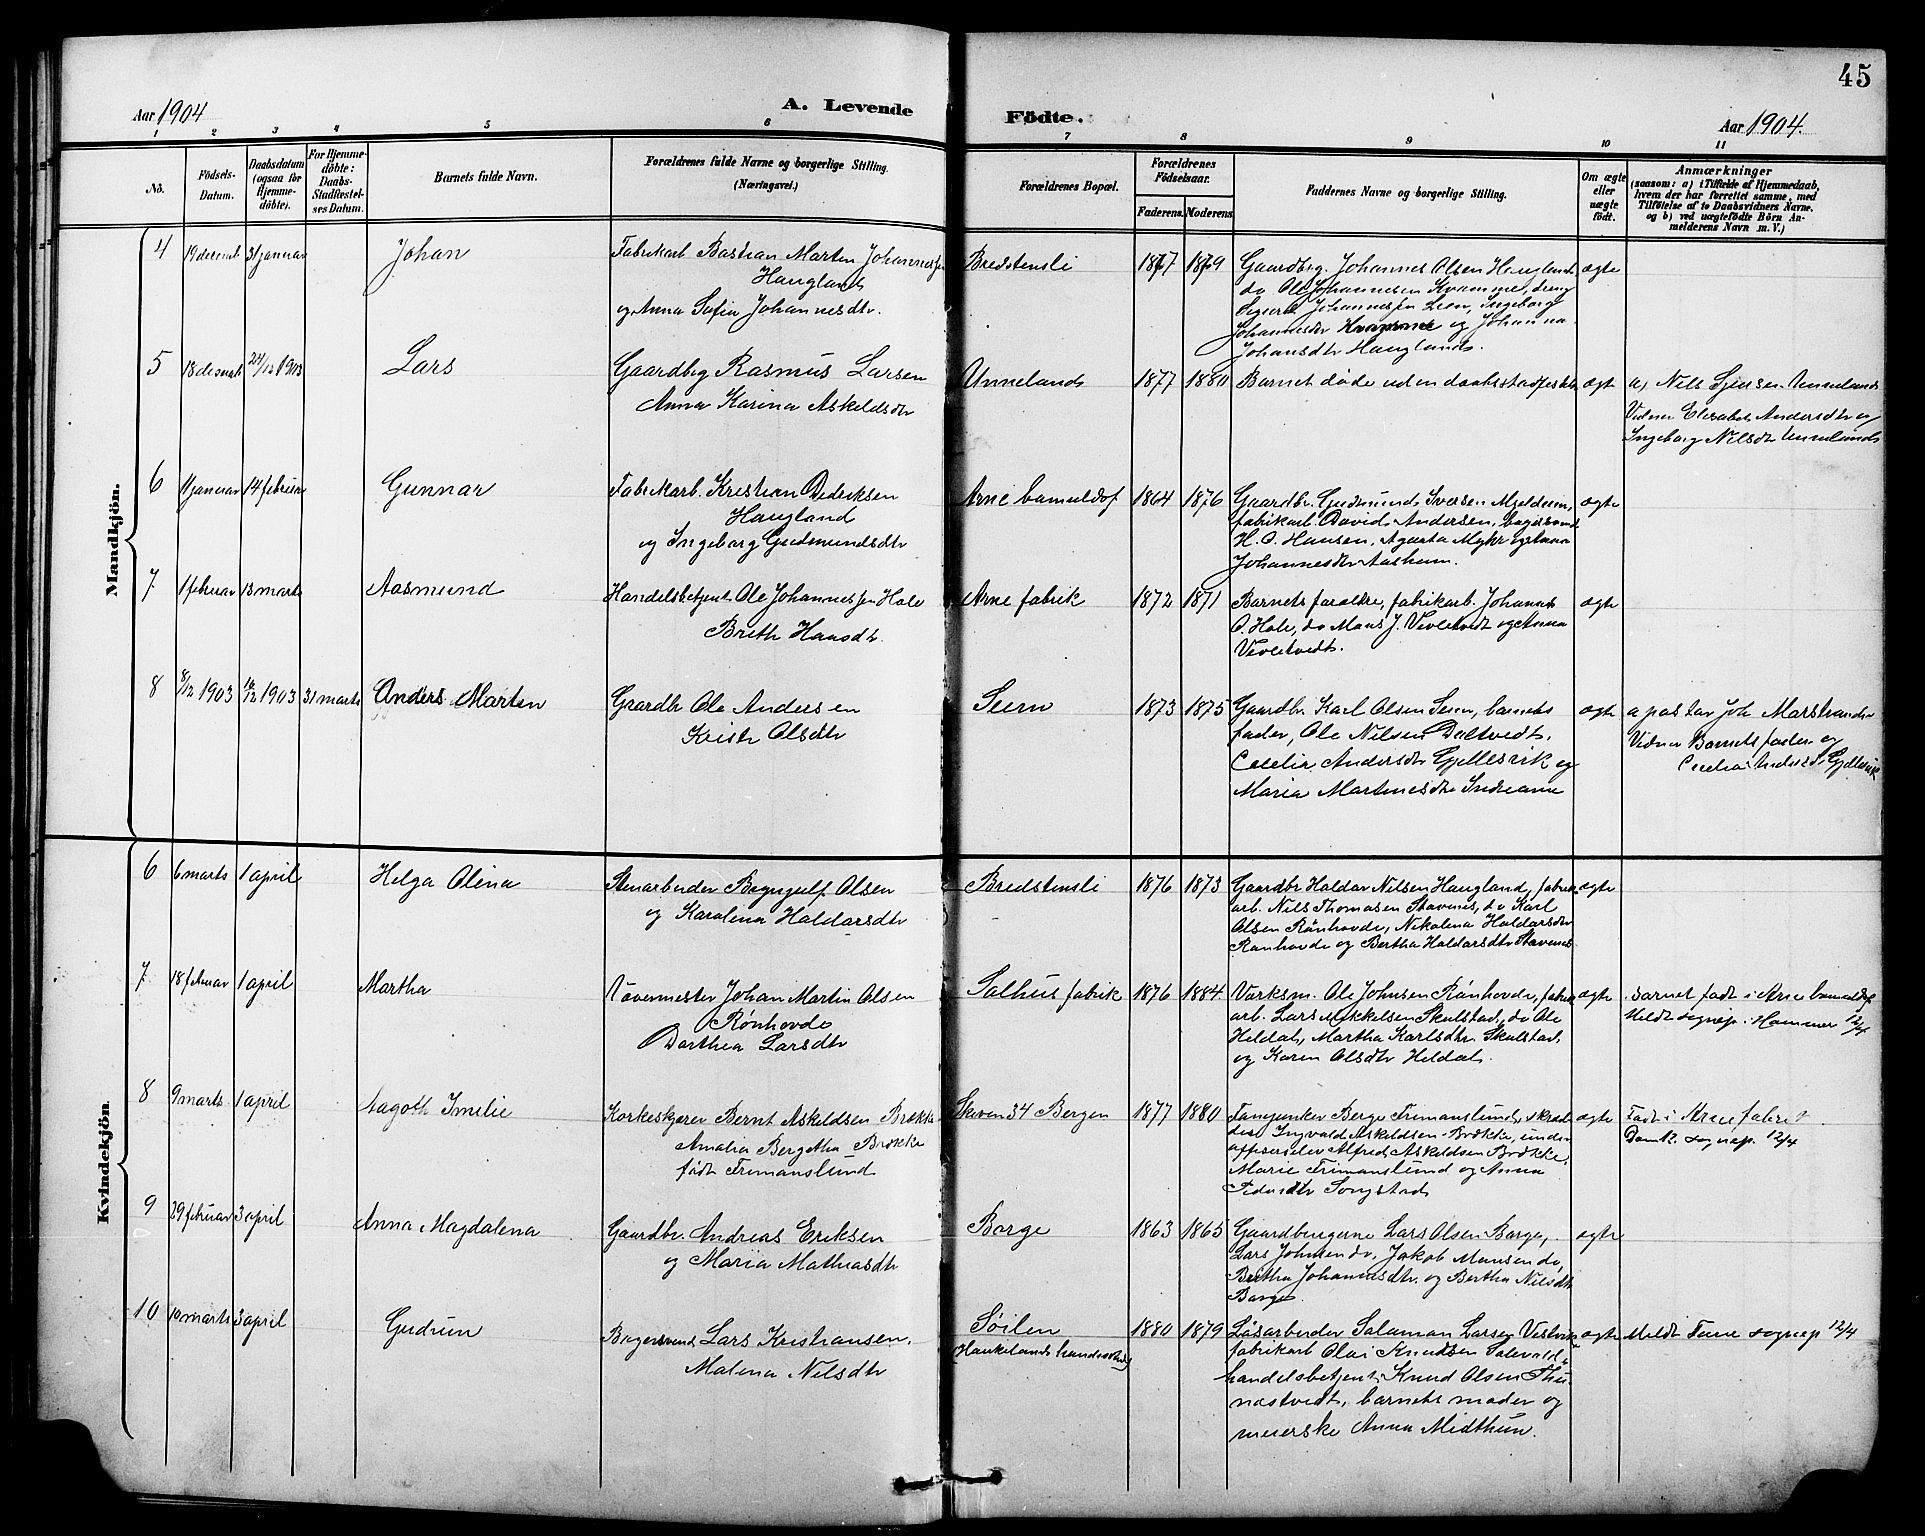 45
Aar 1904
A. Levende
Födte.
Aar 1904.
1 2 3 4 5 6 7 8 9 10 11
No.
Födsels-
Datum.
Daabsdatum
(ogsaa for
Hjemme-
döbte).
For Hjemme-
döbte:
Daabs-
Stadfæstel-
ses Datum.
Barnets fulde Navn.
Forældrenes fulde Navne og borgerlige Stilling.
(Næringsvei.)
Forældrenes Bopæl.
Forældrenes
Födselsaar.
Faderens. Moderens
Faddernes Navne og borgerlige Stilling.
Om ægte
eller
uægte
födt.
Anmærkninger
(saasom: a) i Tilfælde af Hjemmedaab,
hvem der har forrettet samme, med
Tilföielse af to Daabsvidners Navne,
og b) ved uægtefödte Börn An-
melderens Navn m. V.)
Mandkjön.
4 19 decemb 31 januar
Johan
Fabrikarb Bastian Marten Johannessen
Haugland
og Anna Sofia Johannesdtr.
Bredstensli
1877 1879
Gaardbrg. Johannes Olsen Haugland
do Ole Johannesen Kvamme, dreng
Sigurd Johannessen Leon, Ingeborg
Johannesdtr Kvamme og Johanna
Johansdtr Hauglands.
ægte
5 18 desemb 24/12 1903
Lars
Gaardbrg Rasmus Larsen
Anna Karina Askeldsdtr
Unnelands
1877 1880
Barnet døde uden daabsstadfestelse
ægte
a, Nils Unnelands
Vidner Elisabet Andersdtr og
Ingeborg Nilsdtr Unnelands
6 11 januar 14 februar
Gunnar
Fabrikarb. Kristian Dideriksen
Haugland
og Ingeborg Gudmundsdtr
Arne bomuldsf
1864 1876
Gaardbr. Gudmund Iversen Mjeldeim,
fabrikarb. David Andersen, bagersvend
H. O. Hansen, Agasta Myhr og Anna
Johannesdtr Aasheim.
ægte
7 1 februar 13 marts
Aasmund
Handelsbetjent Ole Johannessen Hole
Brith Hansdtr.
Arne fabrik
1872 1871
Barnets foraldre, fabrikarb. Johannes
O. Hole, do Mons J. Vevletvedt og Anna
Vevletvedt.
ægte
8 8/12 1903 10/12 1903 31 marts
Anders Marten
Gaardbr Ole Andersen
Kristi Olsdtr
Seim
1873 1875
Gaardbr. Karl Olsen Seim, barnets
fader, Ole Nilsen Daltvedt,
Cecelie Andersdtr Gjellesvik og
Maria Martinesdtr Indreame
ægte
a pastor Joh. Marstrander
Vidner Barnets fader og
Cecelia Andersd. Gjellesvik
Kvindekjön.
6 6 marts 1 april
Helga Olina
Stenarbeider Brynjulf Olsen
og Karolina Haldorsdtr
Bredstensli
1876 1873
Gaardbr Haldor Nilsen Haugland, fabrik
arb. Nils Thomasen Stavenes, do Karl
Olsen Rønhovde, Nikolina Haldorsdtr
Rønhovde og Bertha Haldorsdtr Stavenes.
ægte
7 18 februar 1 april
Martha
Vævermester Johan Martin Olsen
Rønhovde
Dorthea Larsdtr
Salhus fabrik
1876 1884
Værksm. Ole Johnsen Rønhovde, fabrik
arb. Lars Mikkelsen Skulstad, do Ole
Heldal, Martha Karlsdtr. Skulstad,
og Karen Olsdtr Heldal.
ægte
Barnet født i Arne bomuldsf
Meldt sognep. i Hammer 12/4
8 9 marts 1 april
Aagoth Imelie
Korkeskjærer Bernt Askildsen Brække
Amalia Bergetha Brække
født Trimanslund
Skiven 34 Bergen
1877 1880
Berge Trimanslund, skræd
der Ingvald Askildsen Brække, under
offisers elev Alfred Askildsen Brække,
Marie Trimanslund og Anna
Pedersdtr Songstad.
ægte
Født i Arne fabrik
Domk. sognep. 12/4
9 29 februar 3 april
Anna Magdalena
Gaardbr. Andreas Eriksen
og Maria Mathiasdtr
Borge
1863 1865
Gaardbrugerne Lars Olsen Borge,
Lars Johnsen do, Jakob Monsen do,
Bertha Johannesdtr. og Bertha Nilsdtr
Borge.
ægte
10 10 marts 3 april
Gudrun
Bagersvend Lars Kristiansen,
Malena Nilsdtr
Søilen
Haukelands landssogn
1880 1879
Løsarbeider Salaman Larsen Vestvik
fabrikarb Olai Knudsen Solevald,
handelsbetjent Knud Olsen Thu-
nestvedt, barnets moder og
meierske Anna Midthun.
ægte
Meldt Fane sognep 12/4